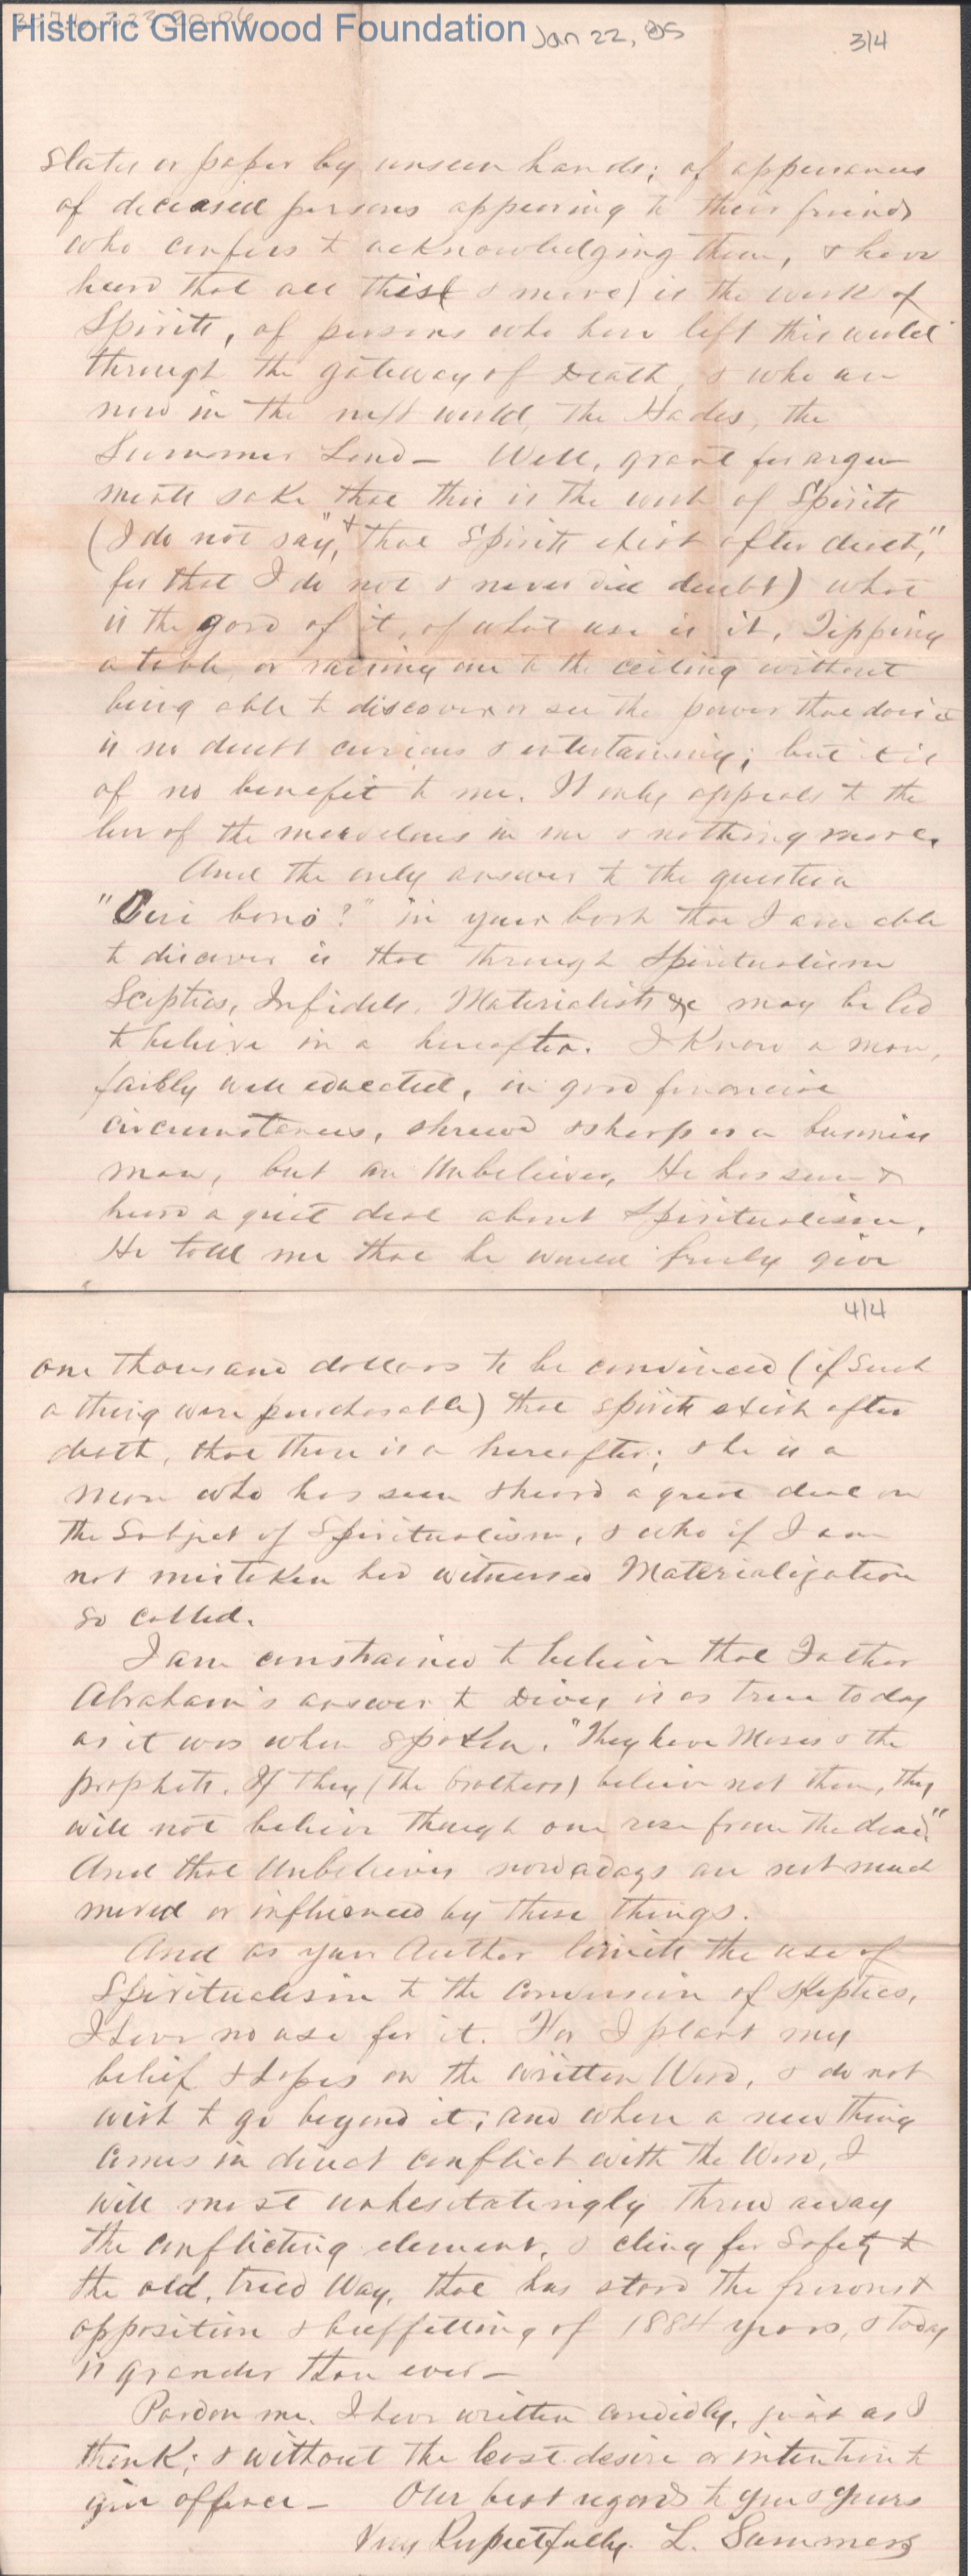 Historic Glenwood Foundation
Jan 22, 85
3/4
slates or paper by unseen hands; of appearances
of deceased persons appearing to their friends
who confess to acknowledging them, & have
heard that all this (& more) is the work of
Spirits, of persons who have left this world
through the gateway of Death, & who are
now in the next world, the Hades, the
Summer Land — Well, grant for argu-
ments sake that this is the work of Spirits
(I do not say, "that Spirits exist after death,"
for that I do not & never did doubt) what
is the good of it, of what use is it. Tipping
a table, or raising one to the ceiling without
being able to discover or see the power that does it
is no doubt curious & entertaining; but it is
of no benefit to me. It only appeals to the
love of the marvelous in me & nothing more.
And the only answer to the question
"Cui bono?" in your book that I am able
to discover is that through Spiritualism
Sceptics, Infidels, Materialists &c may be led
to believe in a hereafter. I Know a man,
fairly well educated, in good financial
circumstances, shrewd & sharp as a business
man, but an Unbeliever, He has seen &
heard a great deal about Spiritualism.
He told me that he would freely give
4/4
one thousand dollars to be convinced (if such
a thing were purchasable) that spirits exist after
death, that there is a hereafter; & he is a
man who has seen & heard a great deal on
the Subject of Spiritualism, & who if I am
not mistaken had witnessed Materialization
so called.
I am constrained to believe that Father
Abraham's answer to Dives is as true today
as it was when spoken. "They have Moses & the
prophets. If they (the brothers) believe not them, they
will not believe though one rose from the dead."
And that Unbelievers nowadays are not much
moved or influenced by these things.
And as your Author limits the use of
Spiritualism to the Conversion of Skeptics,
I have no use for it. For I plant my
belief & hopes on the written Word, & do not
wish to go beyond it; and when a new thing
comes in direct conflict with the Word, I
will most unhesitatingly throw away
the conflicting element, & cling for safety to
the old, tried Way, that has stood the fiercest
opposition & buffetting of 1884 years, & today
is grander than ever —
Pardon me. I have written candidly, just as I
think; & without the least desire or intention to
give offence — Our best regards to you & yours
Very Respectfully. L. Sammers